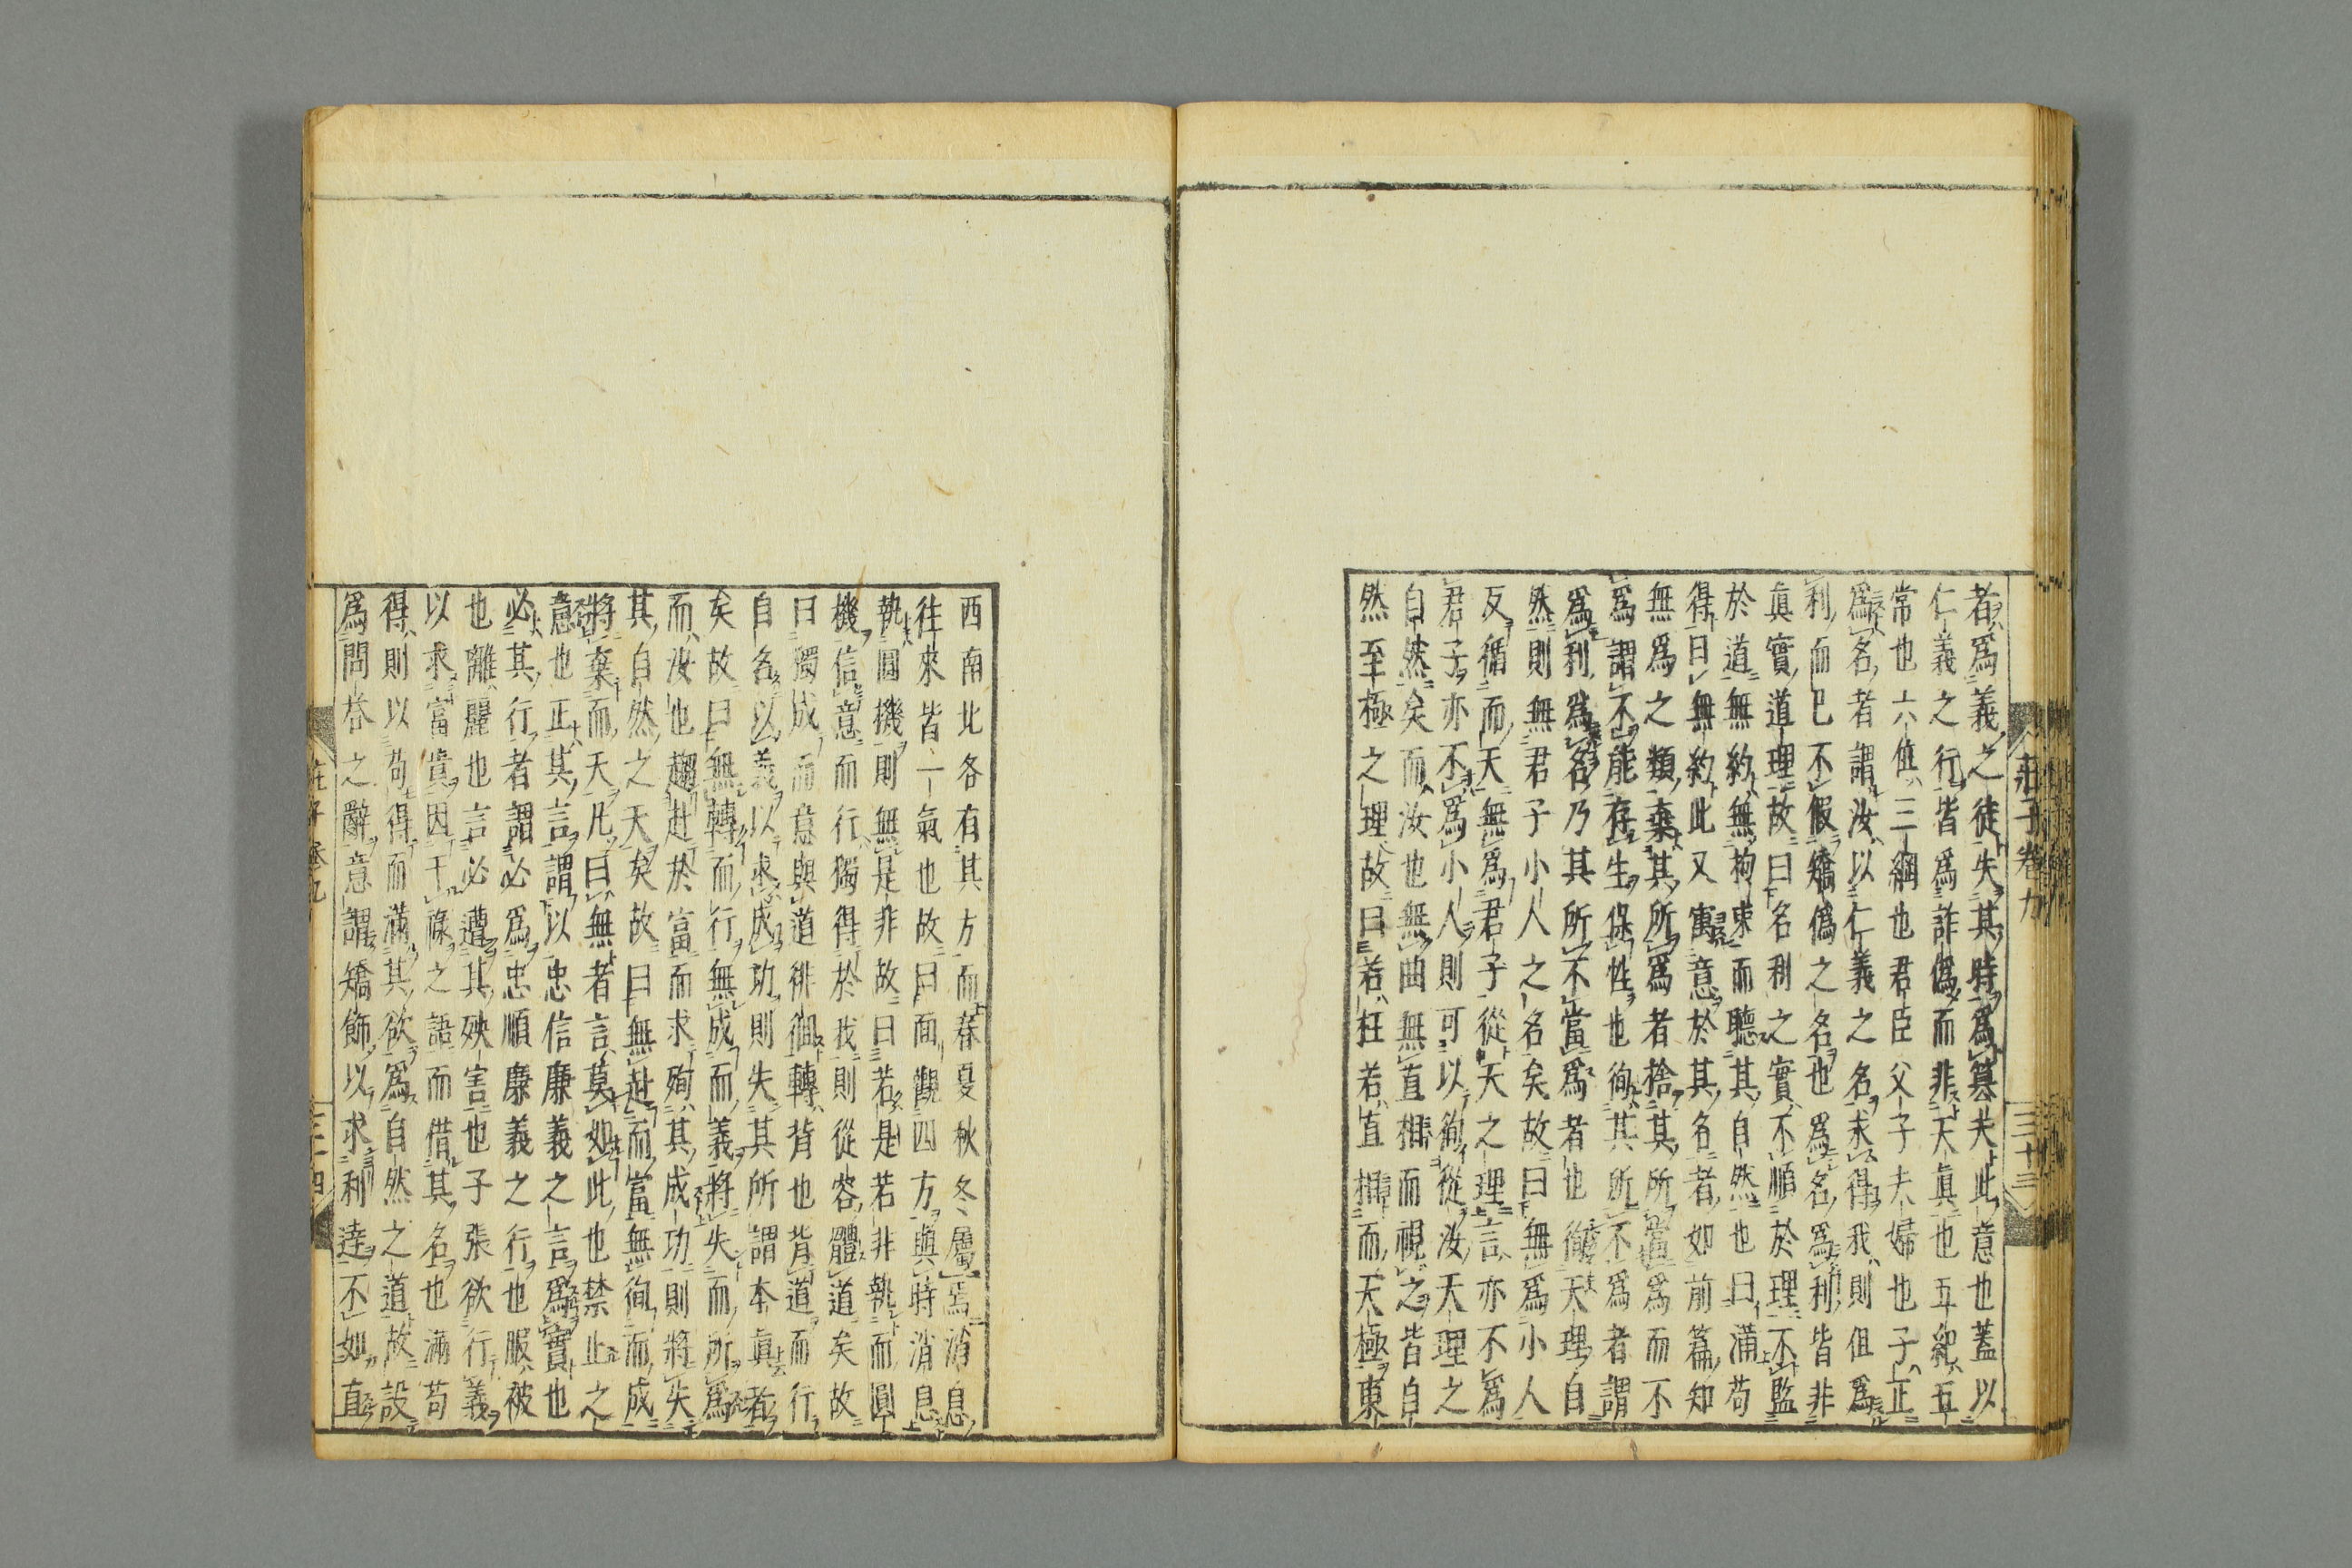 者爲義之徒失其時爲篡夫此意也蓋以
仁義之行皆爲詐僞而非天真也五紀五
常也六位三綱也君臣父子夫婦也子正
爲名者謂汝以仁義之名求得我則但爲
利而已不假矯僞之名也爲名爲利皆非
眞實道理故曰名利之實不順於理不監
於道無約無拘束而聽其自然也曰滿苟
得曰無約此又寓意於其名者如前篇知
無爲之類棄其所爲者捨其所當爲而不
爲謂不能存生保性也徇其所不爲者謂
爲利爲名乃其所不當爲者也徇天理自
然則無君子小人之名矣故曰無爲小人
反循而天無爲君子從天之理言亦不爲
君子亦不爲小人則可以徇從汝天理之
自然矣而汝也無曲無直相而視之皆自
然至極之理故曰若枉若直相而天極東
莊子卷九
三十三
西南北各有其方而春夏秋冬屬焉消息
往來皆一氣也故曰面觀四方與時消息
執圓機則無是非故曰若是若非執而圓
機信意而行獨得於我則從容體道矣故
曰獨成而意與道徘徊轉背也背道而行
自名以義以求成功則失其所謂本眞者
矣故曰無轉而行無成而義將失而所爲
而汝也趨赴於富而求殉其成功則將失
其自然之天矣故曰無赴而富無徇而成
將棄而天凡曰無者言莫如此也禁止之
意也正其言謂以忠信廉義之言爲實也
必其行者謂必爲忠順廉義之行也服被
也離麗也言必遭其殃害也子張欲行義
以求富貴因干祿之語而借其名也滿苟
得則以苟得而滿其欲爲自然之道故設
爲問荅之辭意謂矯飾以求利達不如直
莊子卷九
三十四